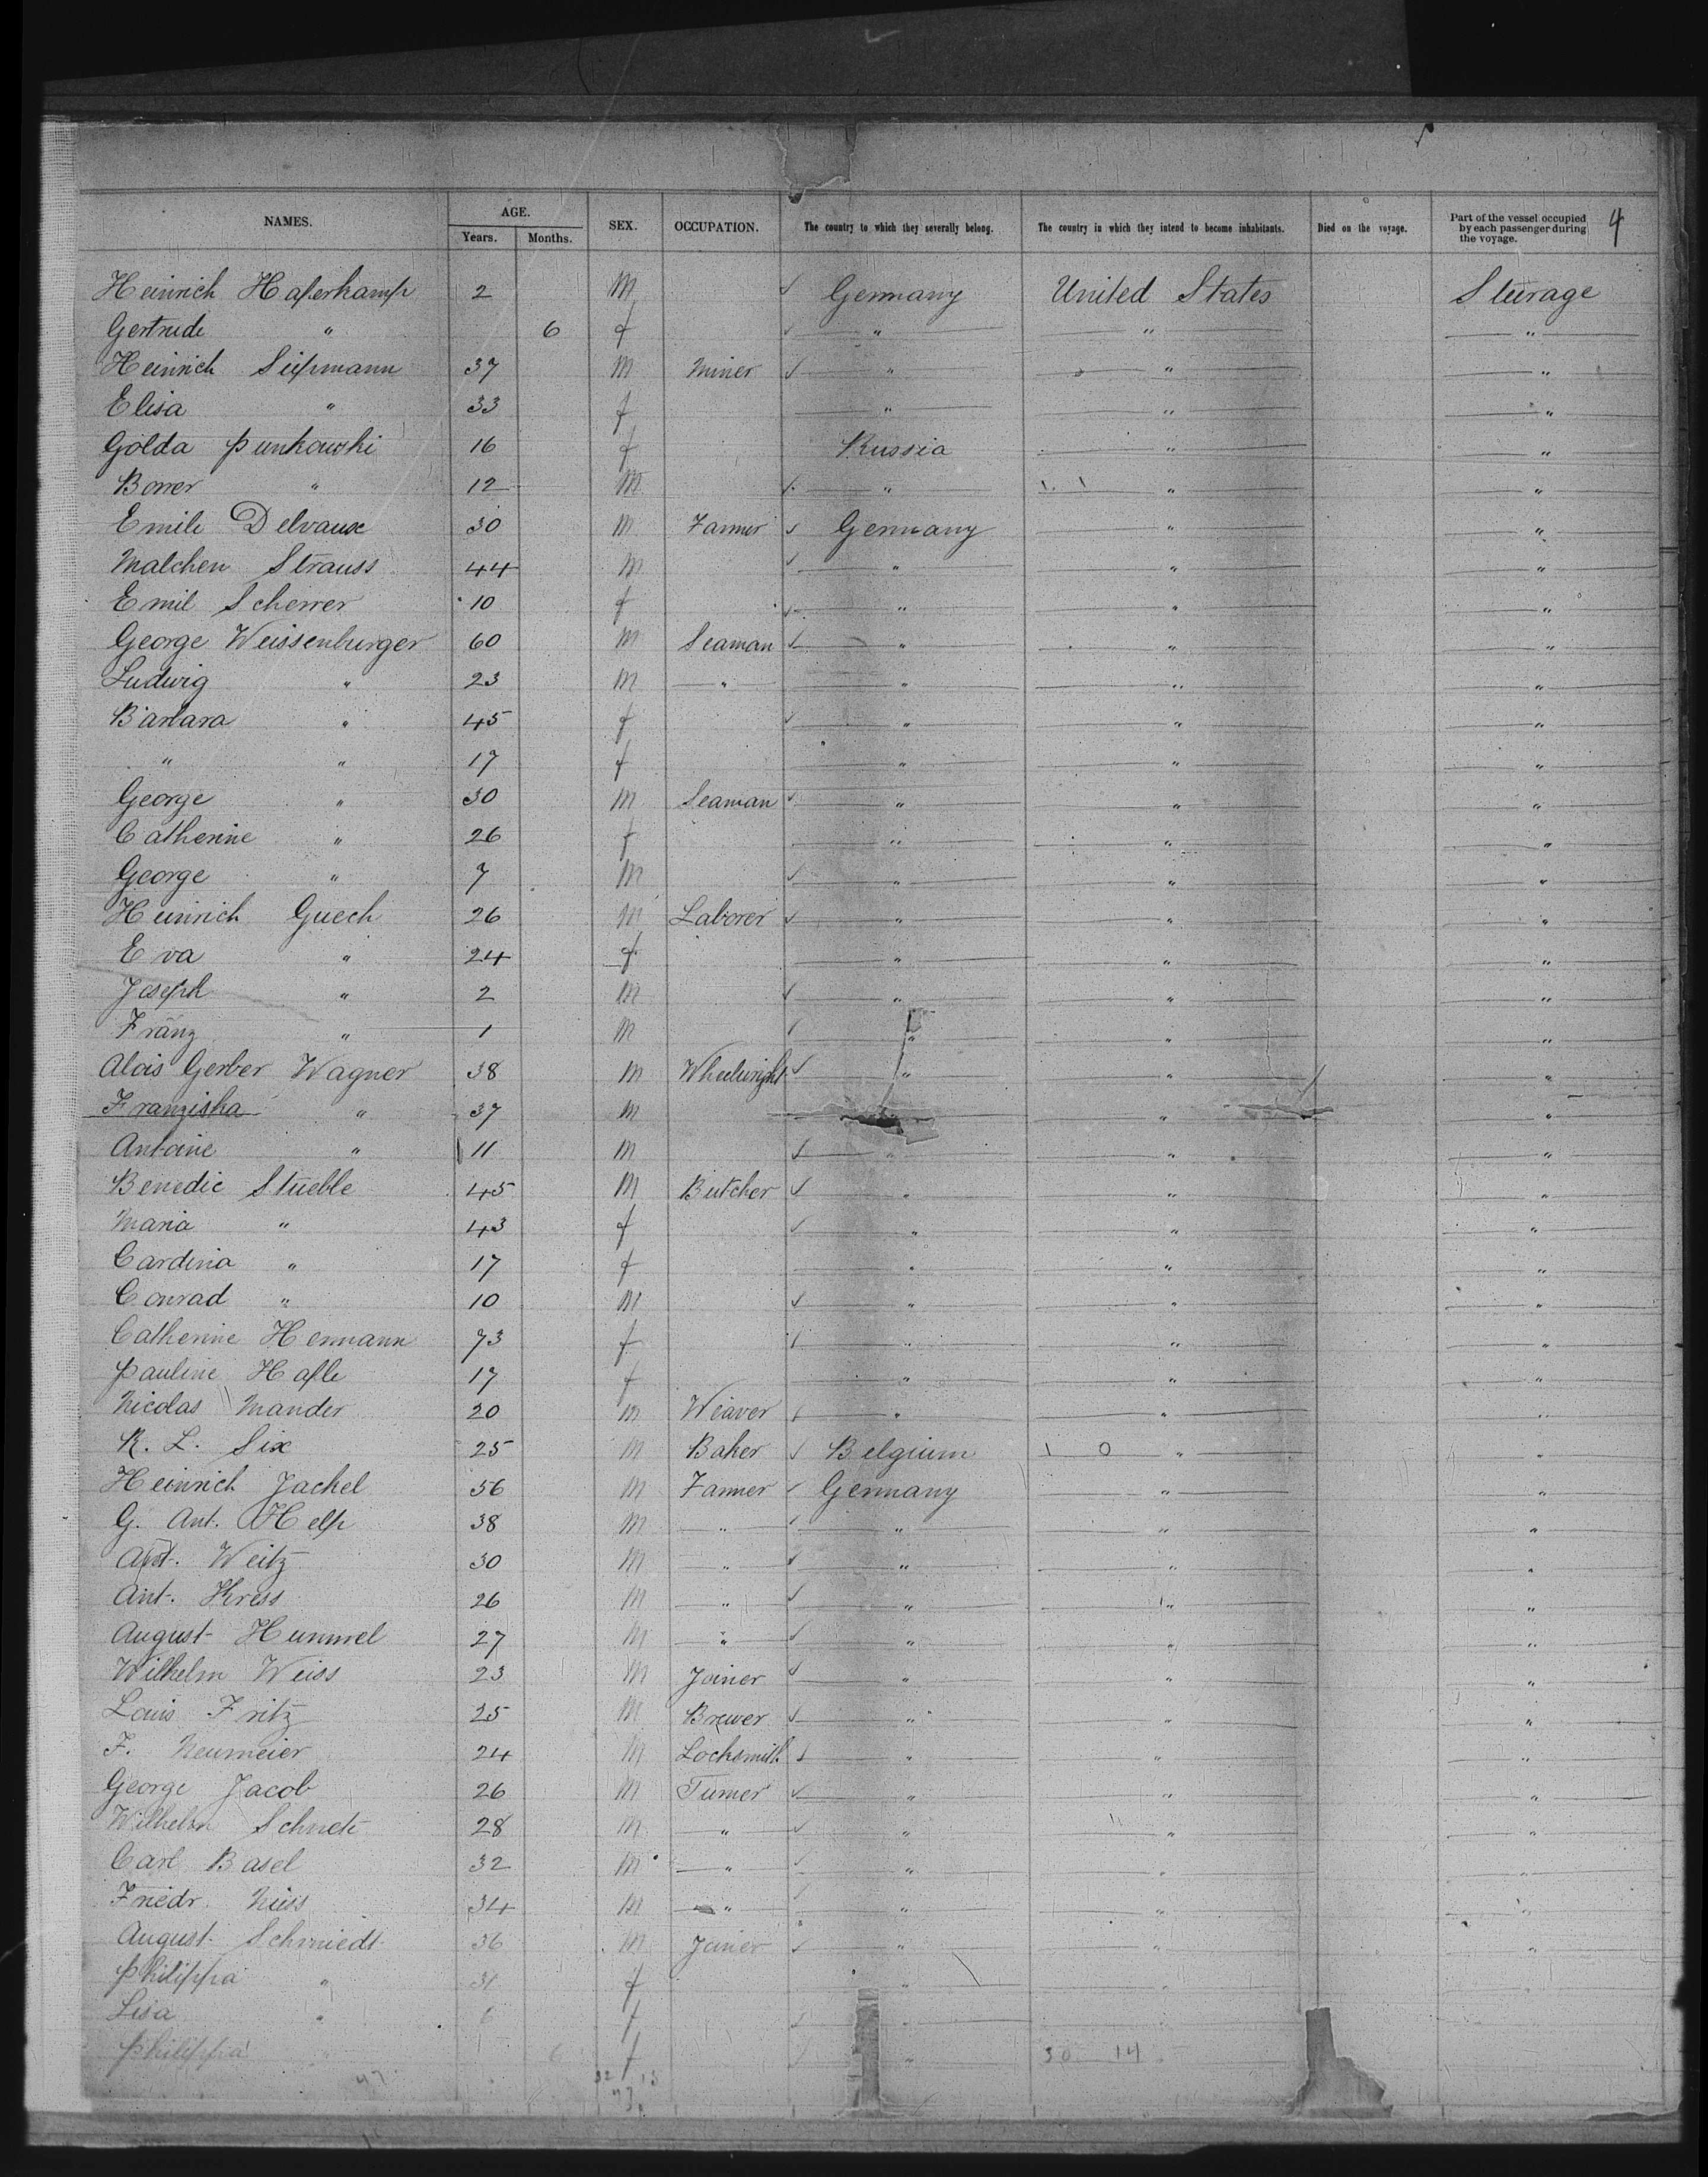 4
NAMES. AGE. Years. Months. SEX. OCCUPATION. The country to which they severally belong. The country in which they intend to become inhabitants. Died on the voyage. Part of the vessel occupied by each passenger during the voyage.
Heinrich Haferkamp 2 M Germany United States Steerage
Gertrude " 6 f " " "
Heinrich Siepmann 37 M Miner " " "
Elisa " 33 f " " "
Golda Punkowski 16 f Russia " "
Borrer " 12 M " " "
Emile Delvaux 30 M Farmer Germany " "
Malchen Strauss 44 M " " "
Emil Scherrer 10 f " " "
George Weissenburger 60 M Seaman " " "
Ludwig " 23 M " " " "
Barbara " 45 f " " "
" " 17 f " " "
George " 30 M Seaman " " "
Catherine " 26 f " " "
George " 7 M " " "
Heinrich Guech 26 M Laborer " " "
Eva " 24 f " " "
Joseph " 2 M " " "
Franz " 1 M " " "
Alois Gerber Wagner 38 M Wheelwright " " "
Franziska " 37 M " "
Antoine " 11 M " " "
Benedic Stueble 45 M Butcher " " "
Maria " 43 f " " "
Cardina " 17 f " " "
Conrad " 10 M " " "
Catherine Hermann 73 f " " "
Pauline Hafle 17 f " " "
Nicolas Mander 20 m Weaver " " "
R. L. Six 25 M Baker Belgium 1 0 " "
Heinrich Jackel 56 M Farmer Germany " "
G. Ant. Help 38 M " " " "
Ant. Weitz 30 M " " " "
Ant. Kress 26 M " " " "
August Hummel 27 M " " " "
Wilhelm Weiss 23 M Joiner " " "
Louis Fritz 25 M Brewer " " "
F. Neumeier 24 M Locksmith " " "
George Jacob 26 M Turner " " "
Wilhelm 28 M " " " "
Carl Basel 32 M " " " "
Friedr. 34 M " " " "
August Schmiedt 36 M Joiner " " "
Philippa " 31 f " "
Lisa " 6 f "
Philippa " 6 f " 30 14
47 32 15